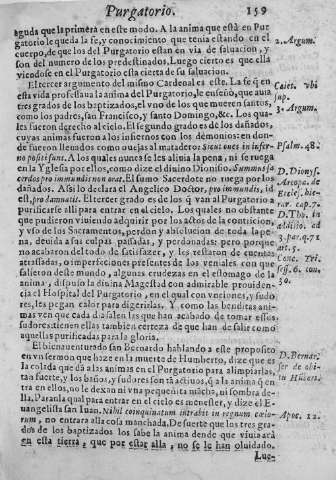 Purgatorio. 159
aguda que la primera en este modo. A la anima que està en Pur
gatorio le queda la fe, y conocimiento que tenia estando en el
cuerpo, de que los del Purgatorio estan en via de saluacion, y
son del numero de los predestinados. Luego cierto es que ella
viendose en el Purgatorio esta cierta de su saluacion.
El tercer argumento del mismo Cardenal es este. La fe q̃ en
esta vida professaua la anima del Purgatorio, le enseñò, que auia
tres grados de los baptizados, el vno de los que mueren santos,
como los padres, san Francisco, y santo Domingo, &c. Los qua-
les fueron derecho al cielo. El segundo grado es de los dañados,
cuyas animas fueron a los infiernos con los demonios: en don-
de fueron lleuados como ouejas al matadero: Sicut oues in infer-
no positi sunt. A los quales no se les aliuia la pena, ni se ruega
en la Yglesia por ellos, como dize el diuino Dionisio, Summus sa
cerdos pro immundis non orat. El sumo Sacerdote no ruega por los
dañados. Assi lo declara el Angelico Doctor, pro immundis, id
est, pro damnatis. El tercer grado es de los q̃ van al Purgatorio a
purificarse alli para entrar en el cielo. Los quales no obstante
que pudieron viuiendo adquirir por los actos de la contricion,
y vso de los Sacramentos, perdon y absolucion de toda la pe-
na, deuida a sus culpas passadas, y perdonadas: pero porque
no acabaron del todo de satisfazer, y les restaron de cuentas
atrasadas, o imperfecciones presentes de los veniales con que
salieron deste mundo, algunas crudezas en el estomago de la
anima, dispuso la diuina Magestad con admirable prouiden-
cia el Hospital del Purgatorio, en el qual con vnciones, y sudo-
res, les pegan calor para digerirlas. Y como las benditas ani-
mas ven que cada dia salen las que han acabado de tomar essos
sudores: tienen ellas tambien certeza de que han de salir como
aquellas purificadas para la gloria.
El bienauenturado san Bernardo hablando a este proposito
en vn sermon que haze en la muerte de Humberto, dize que es
la colada que dà a las animas en el Purgatorio para alimpiarlas,
tan fuerte, y los baños, y sudores son tã actiuos, q̃ a la anima q̃ en
tra en ellos, no le dexan ni vna pequeñita mācha, ni sombra de-
lla. Para lo qual para entrar en el cielo es menester, y dize el E-
uangelista san Iuan. Nihil coinquinatum intrabit in regnum cælo-
rum, no entrara alla cosa manchada. De suerte que los tres gra-
dos de los baptizados los sabe la anima dende que viuia arà
en esta tierra, que por estar alla, no se le han oluidado.
Lue-
2. Argum.
Caiet. vbi
sup.
3. Argum.
Psalm. 48.
D. Dionys.
Areopa. de
Eccles. hie-
rar. cap. 7.
D. Tho. in
additio. ad
3. par. q. 71
ar. 5.
Conc. Tri.
sess. 6. can.
30.
D. Bernar.
ser. de obi-
tu Humb.
Apoc. 22.